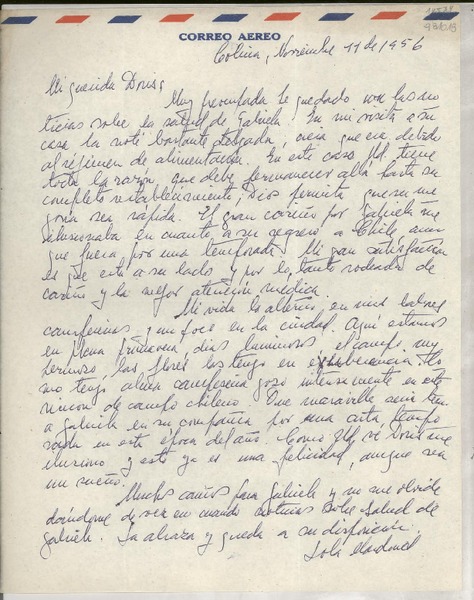 CORREO AEREO
Colina, Noviembre 11 de 1956
Mi querida Doris:
Muy preocupada he quedado con las no
ticias sobre la salud de Gabriela. En mi visita a su
casa la noté bastante delgada, creía que era debido
al régimen de alimentación. En este caso Ud. tiene
toda la razón, que debe permanecer allá hasta su
completo restablecimiento, Dios permita que su me
joría sea rápida. El gran cariño por Gabriela me
ilusionaba en cuanto a su regreso a Chile, aun
que fuera por una temporada. Mi gran satisfacción
es que está a su lado y por lo tanto rodeada de
cariño y la mejor atención médica.
Mi vida la alterno, en mis labores
campesinas y un poco en la ciudad. Aquí estamos
en plena primavera, días luminosos el campo muy
hermoso, las flores las tengo en exuberancia. Yo
como tengo alma campesina gozo intensamente en este
rincón de campo chileno. Que maravilla sería tener
a Gabriela en su compañía por una corta tempo
rada en esta época del año. Como Ud. ve Doris me
ilusiono y esto ya es una felicidad, aunque sea
un sueño.
Muchos cariños para Gabriela y no me olvide
dándome de vez en cuando noticias sobre salud de
Gabriela. La abraza y queda a su disposición.
Lola